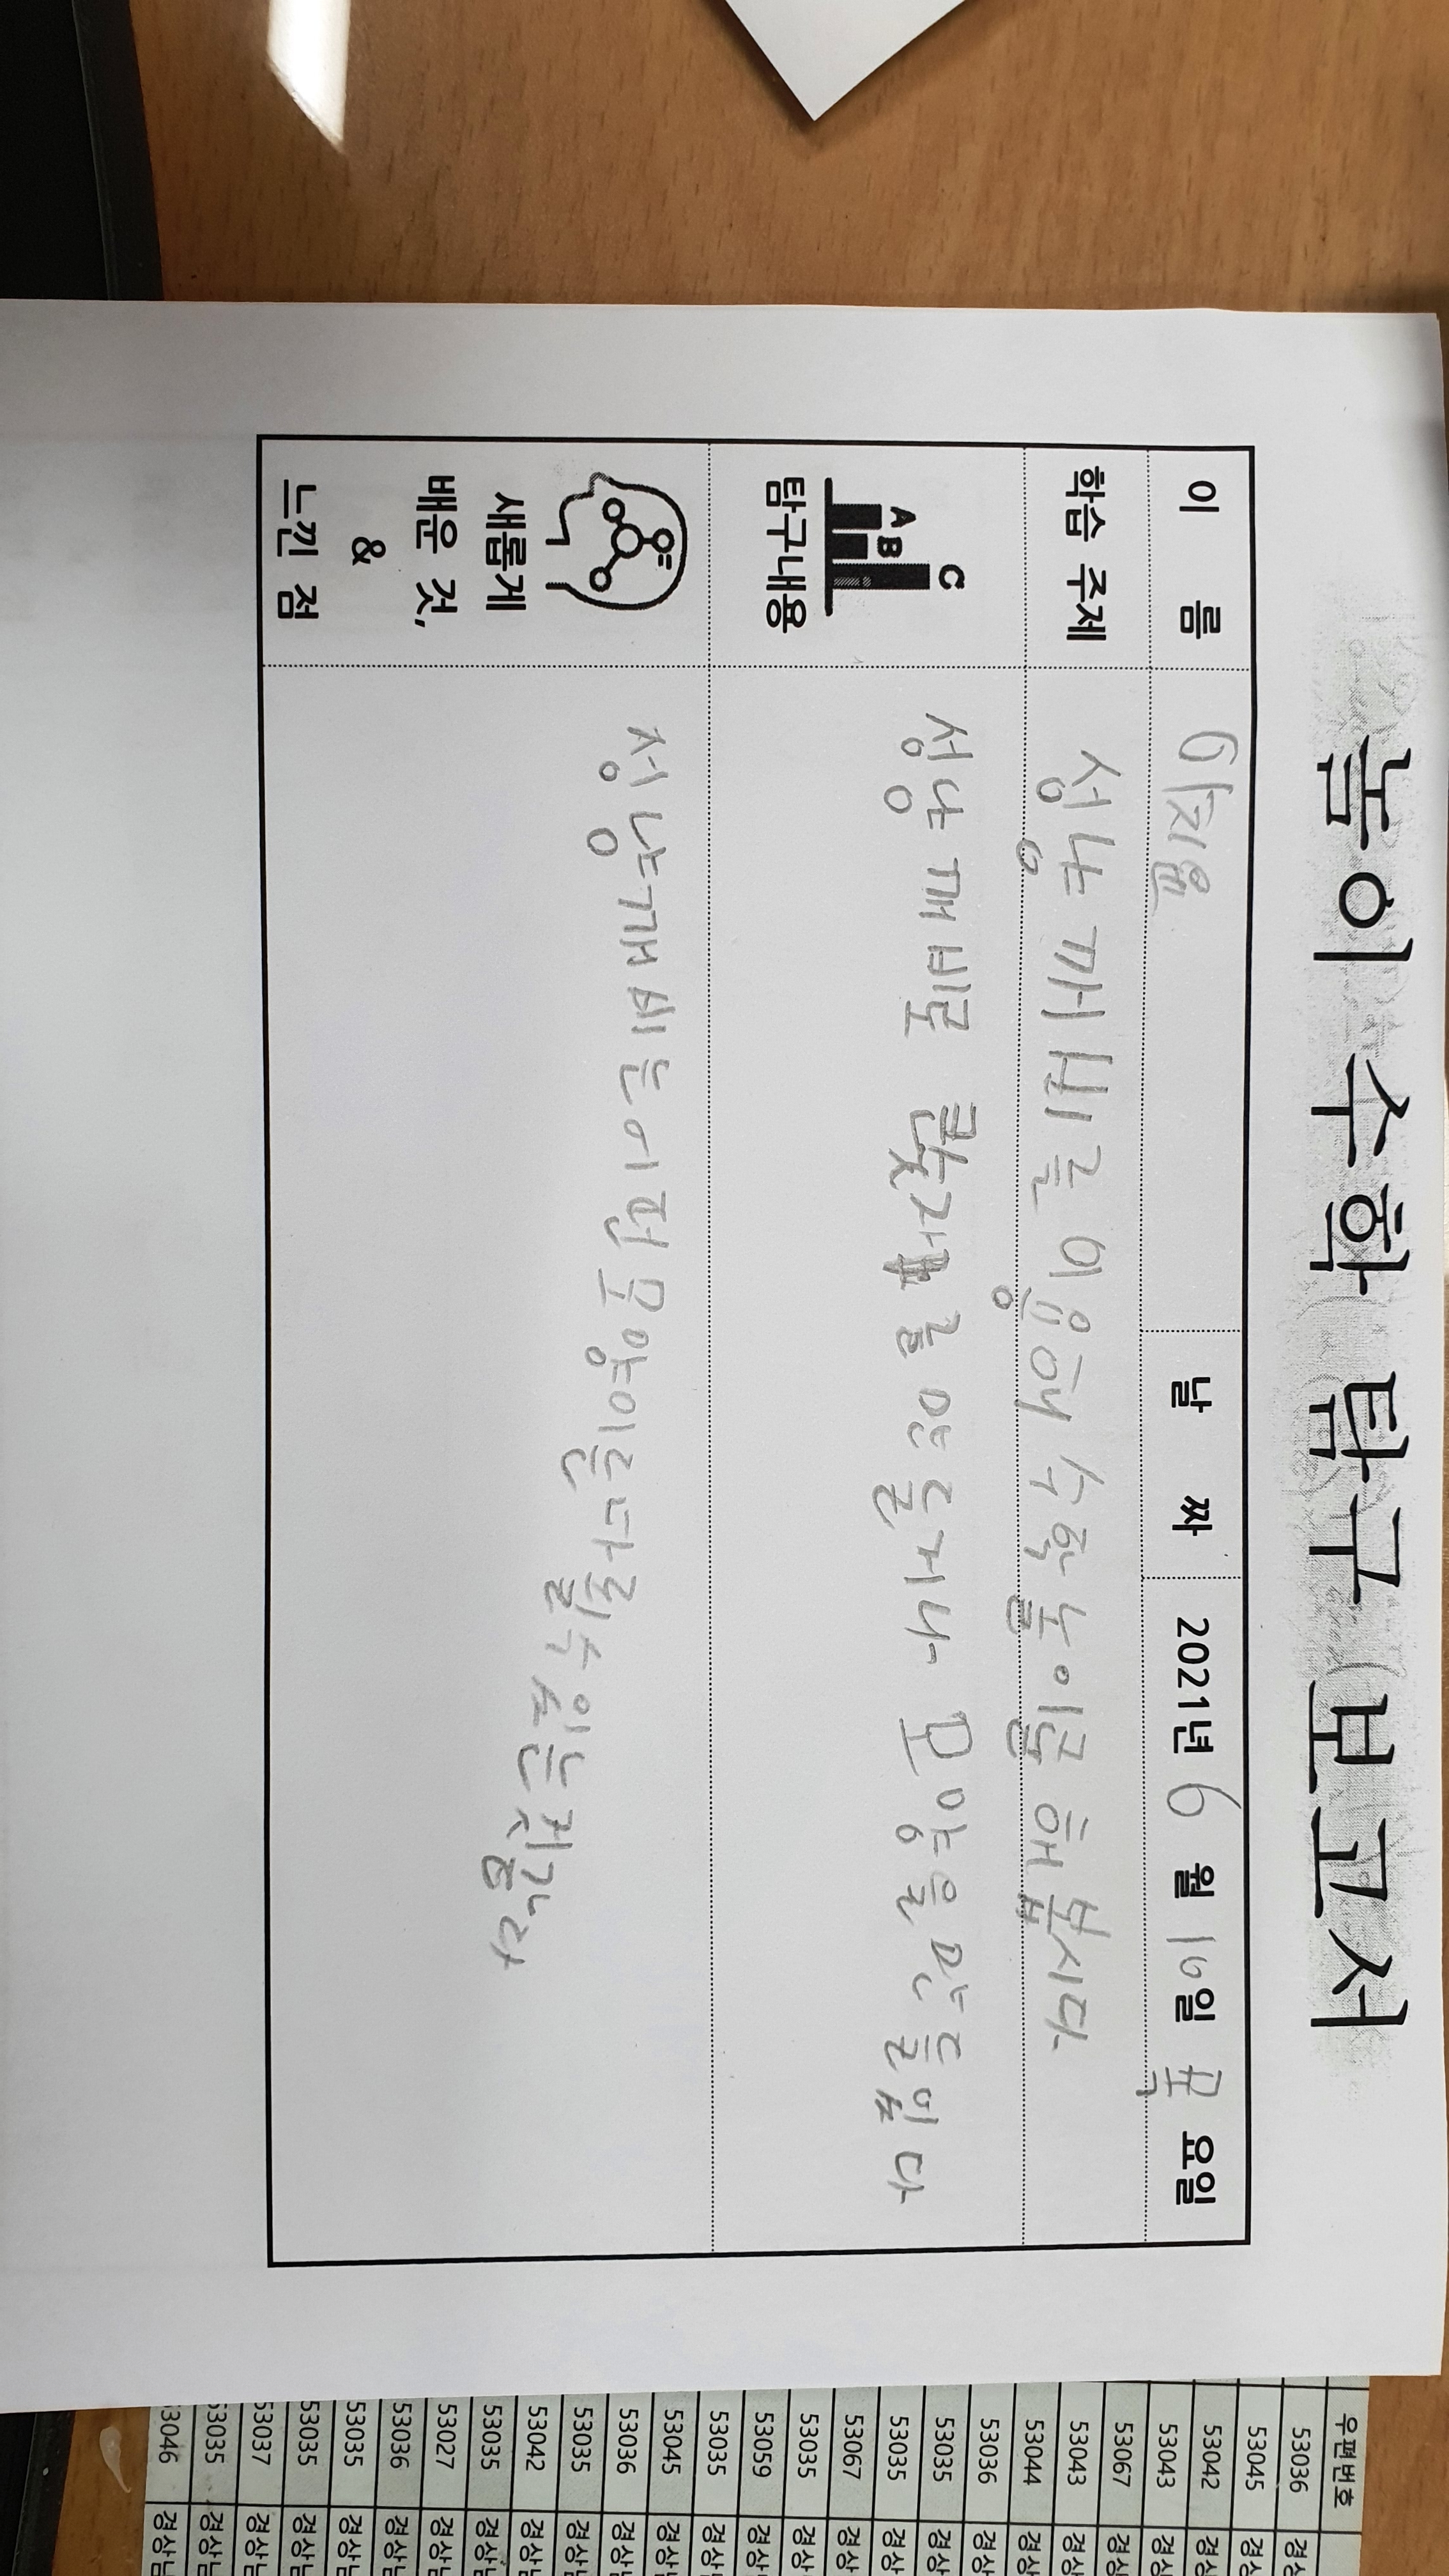 놀이 수학 탐구 보고서
이 름 이지율 날 짜 2021년 6 월 10일 목 요일
학습 주제 성냥깨비를 이용해 수학놀이를 해 봅시다.
A B C
탐구내용
성냥깨비로 숫자를 만들거나 모양을 만듭니다
성냥깨비는 어떤 모양이든 다 될 수 있는 것 같다
새롭게
배운 것,
&
느낀 점
우편번호
53036 경상
53045 경상
53042 경상
53043 경상
53067 경상
53043 경상
53044 경상
53036 경상
53035 경상
53035 경상
53067 경상
53035 경상
53059 경상
53035 경상
53045 경상
53036 경상
53035 경상
53042 경상
53035 경상
53027 경상
53036 경상
53035 경상
53035 경상
53037 경상
53035 경상
53046 경상